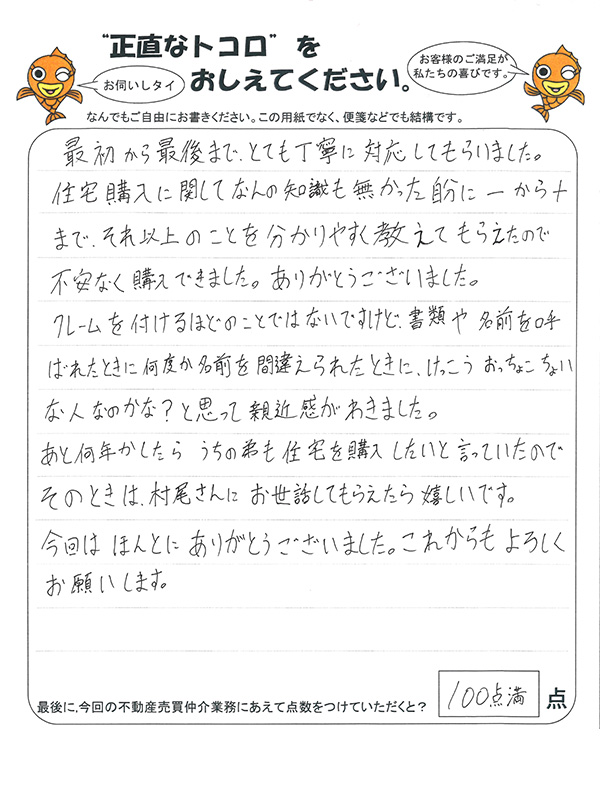 "正直なトコロ"を
おしえてください。
お伺いしタイ
お客様のご満足が
私たちの喜びです。
なんでもご自由にお書きください。この用紙でなく、便箋などでも結構です。
最初から最後まで、とても丁寧に対応してもらいました。
住宅購入に関してなんの知識も無かった自分に一から十
まで、それ以上のことを分かりやすく教えてもらえたので
不安なく購入できました。ありがとうございました。
クレームを付けるほどのことではないですけど、書類や名前を呼
ばれたときに何度か名前を間違えられたときに、けっこうおっちょこちょい
な人なのかな?と思って親近感がわきました。
あと何年かしたら うちの弟も住宅を購入したいと言っていたので
そのときは、村尾さんにお世話してもらえたら嬉しいです。
今回は ほんとに ありがとうございました。これからもよろしく
お願いします。
最後に、今回の不動産売買仲介業務にあえて点数をつけていただくと?
100点満
点